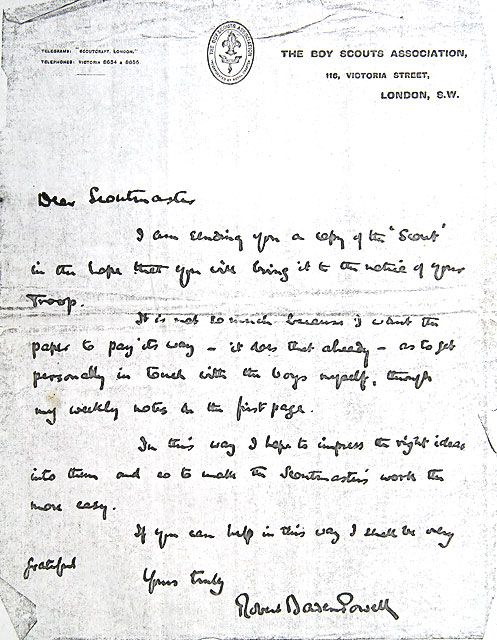 TELEGRAMS: "SCOUTCRAFT, LONDON."
TELEPHONES: VICTORIA 8654 & 8656
THE BOY SCOUTS ASSOCIATION
THE BOY SCOUTS ASSOCIATION,
116, VICTORIA STREET,
LONDON, S.W.
Dear Scoutmaster
I am sending you a copy of the "Scout"
in the hope that you will bring it to the notice of your
Troop.
It is not so much because I want the
paper to pay its way – it does that already – as to get
personally in touch with the boys myself, through
my weekly notes on the first page.
In this way I hope to impress the right ideas
into them and so to make the Scoutmaster's work the
more easy.
If you can help in this way I shall be very
grateful
Yours truly
Robert Baden Powell